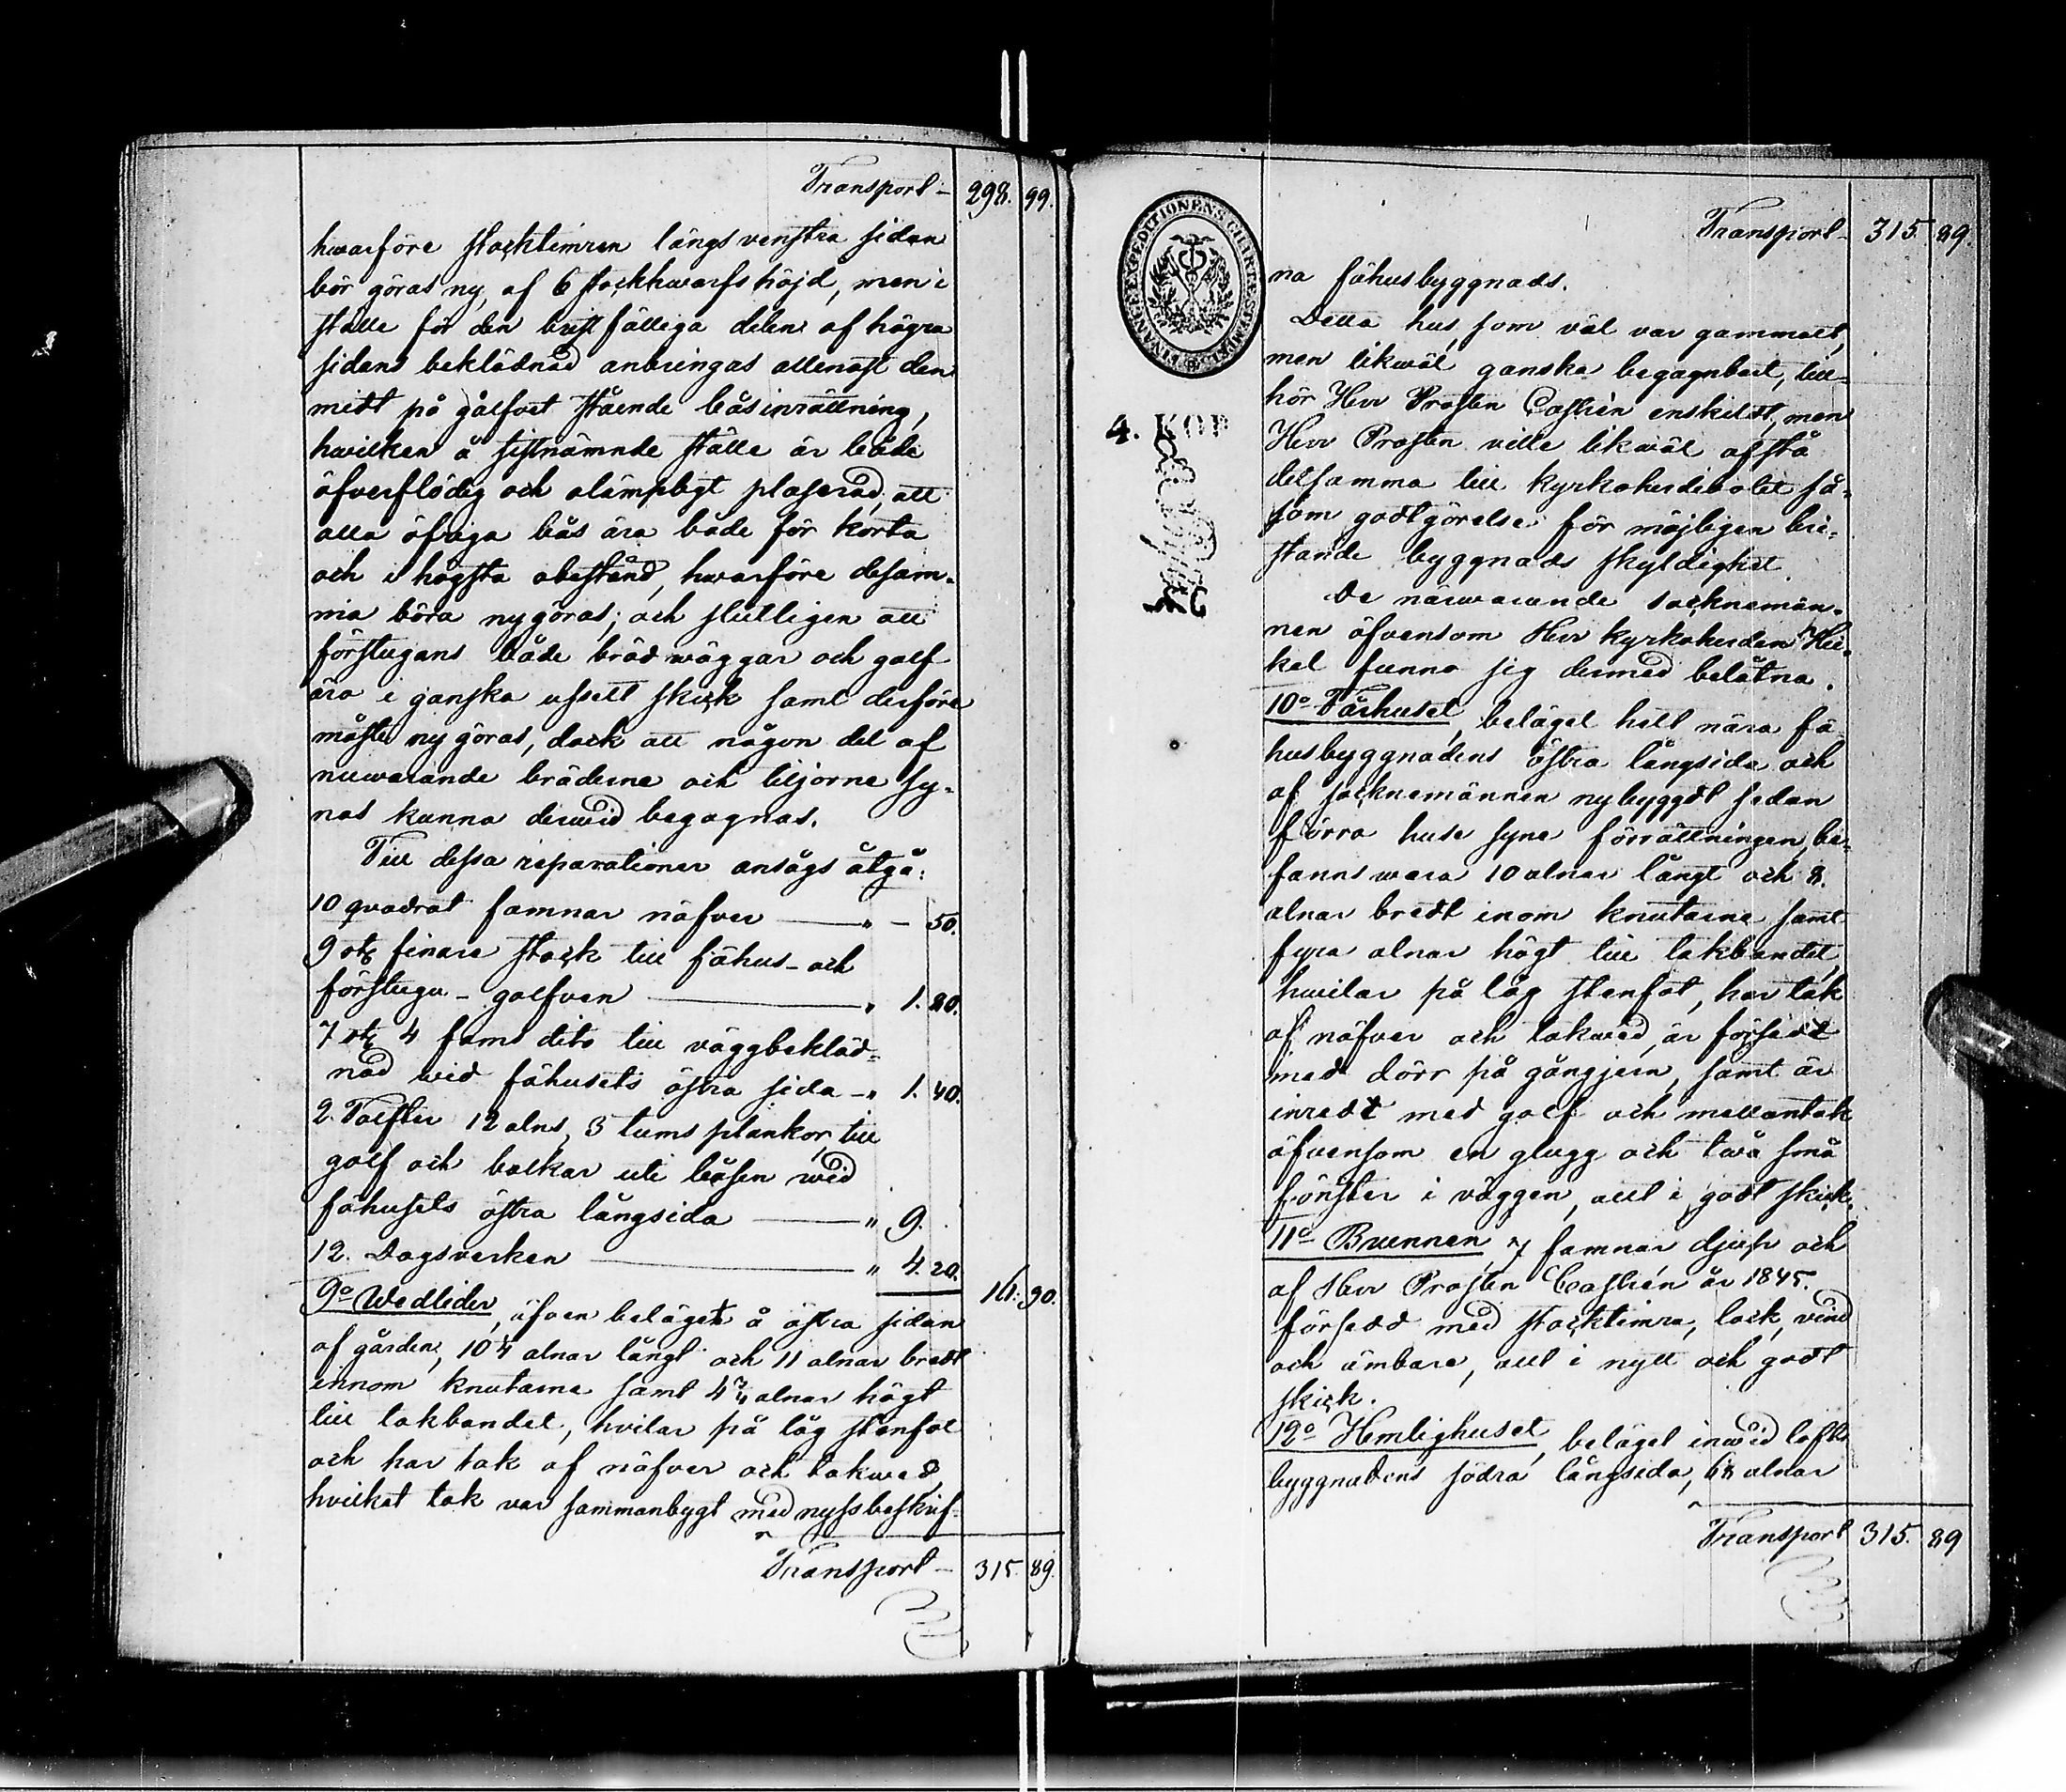 Transport - 298. 99.
hwarföre stocktimren längs venstra sidan
bör göras ny, af 6 stockhwarfs höjd, men i
ställe för den bristfälliga delen af högra
sidans beklädnad anbringas allenast den
midt på golfvet stående båsinrättning,
hwilken å sistnämnde ställe är både
öfverflödig och olämpligt placerad, att
alla öfriga bås äro både för korta
och i högsta obestånd, hwarföre desam-
ma böra nygöras; och slutligen att
förstugans både brädwäggar och golf
äro i ganska usselt skick samt derföre
måste ny göras, dock att någon del af
nuwarande bräderne och tiljorne sy-
nas kunna derwid begagnas.
Till dessa reparationer ansågs åtgå:
10 qvadrat famnar näfver — " — 50.
9 st finare stock till fähus- och
förstugu-golfven — " 1. 80.
7 st 4 famns dito till väggbekläd-
nad wid fähusets östra sida — " 1. 40.
2. Tolfter 12 alns, 3 tums plankor, till
golf och balkar uti båsen wid
fähusets östra långsida — " 9.
12. Dagsverken — " 4. 20.
16. 90.
9o Wedlider, äfven beläget å östra sidan
af gården, 10 1/4 alnar långt och 11 alnar bredt
innom knutarne samt 4 3/4 alnar högt
till takbandet, hvilar på låg stenfot
och har tak af näfver och takwed,
hvilket tak var sammanbygt med nyssbeskrif-
Transport - 315. 89.
FINANCE EXPEDITIONENS CHARTÆ STEMPEL
4. KOP
Transport - 315 89.
na fähusbyggnads.
Detta hus, som väl var gammalt,
men likwäl ganska begagnbart, till-
hör Herr Prosten Castrén enskildt, men
Herr Prosten ville likwäl afstå
detsamma till kyrkoherdebolet så-
som godtgörelse för möjligen bri-
stande byggnads skyldighet.
De närwarande socknemän-
nen äfvensom Herr kyrkoherden Hei-
kel funno sig dermed belåtna.
10o Fårhuset, beläget hitt nära fä
husbyggnadens östra långsida och
af socknemännen nybyggdt sedan
förra huse syne förrättningen, be-
fanns wara 10 alnar långt och 8.
alnar bredt inom knutarne samt
fyra alnar högt till takbandet,
hwilar på låg stenfot, har tak
af näfver och takwed, är försedt
med dörr på gångjern, samt är
inredt med golf och mellantak
äfvensom en glugg och twå små
fönster i väggen, allt i godt skick.
11o Brunnen, 7 famnar djup och
af Herr Prosten Castrén år 1845.
försedd med stocktimra, lock, vind
och ämbare, allt i nytt och godt
skick.
12o Hemlighuset, beläget inwid lofts
byggnadens södra långsida, 6 alnar
Transport 315. 89